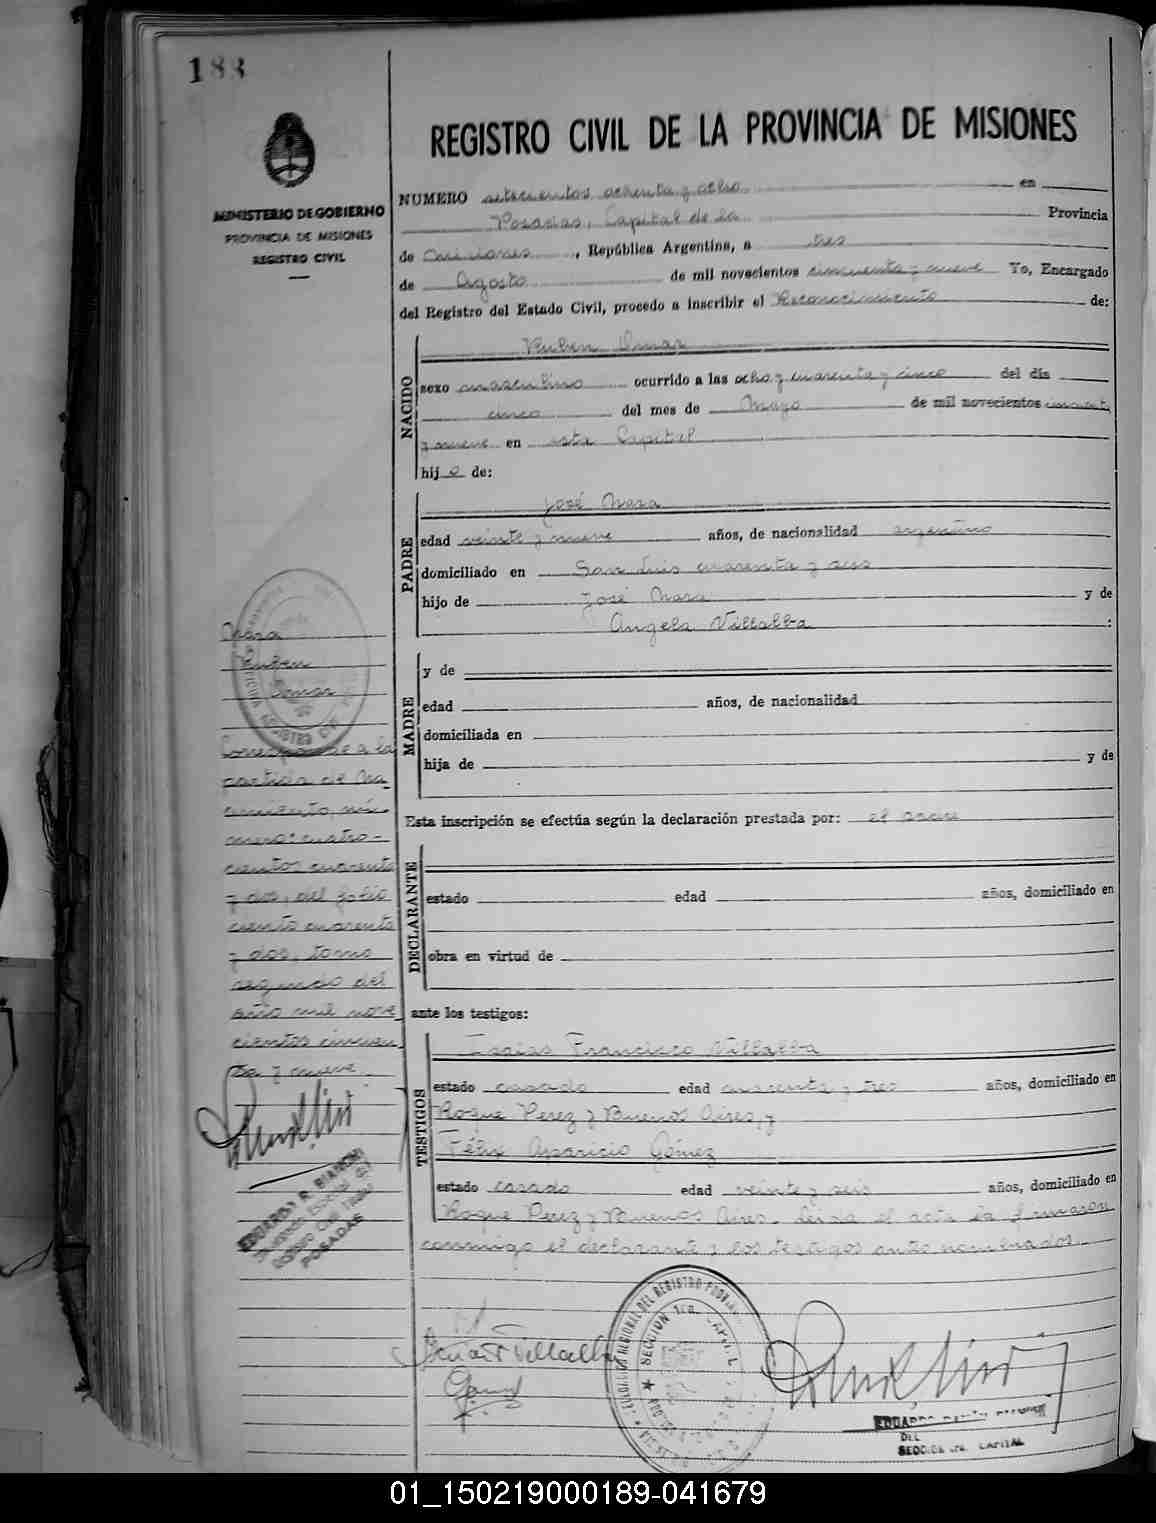 188
REGISTRO CIVIL DE LA PROVINCIA DE MISIONES
MINISTERIO DE GOBIERNO
PROVINCIA DE MISIONES
REGISTRO CIVIL
NUMERO setecientos ochenta y ocho en
Posadas, Capital de la Provincia
de Misiones, República Argentina, a tres
de Agosto de mil novecientos cincuenta y nueve Yo, Encargado
del Registro del Estado Civil, procedo a inscribir el Reconocimiento de:
NACIDO
Ruben Omar
sexo masculino ocurrido a las ocho y cuarenta y cinco del día
cinco del mes de Mayo de mil novecientos cincuenta
y nueve en esta Capital
hijo de:
PADRE
José
edad veinte y nueve años, de nacionalidad argentino
domiciliado en San Luis cuarenta y seis
hijo de José y de
Angela Villalba :
MADRE
y de
edad años, de nacionalidad
domiciliada en
hija de y de
Esta inscripción se efectúa según la declaración prestada por: el padre
DECLARANTE
estado edad años, domiciliado en
obra en virtud de
ante los testigos:
TESTIGOS
Isaias Francisco Villalba
estado casado edad cuarenta y tres años, domiciliado en
Roque Perez y Buenos Aires, y
Félix Aparicio Gómez
estado casado edad veinte y seis años, domiciliado en
Roque Perez y Buenos Aires. Leida el acta la firmaron
conmigo el declarante y los testigos antes nombrados.
Ruben
Omar
Corresponde a la
partida de Na-
cimiento, nú-
mero: cuatro-
cientos cuarenta
y dos, del folio
ciento cuarenta
y dos, tomo
segundo del
año mil nove
cientos cincuen
ta y nueve.
EDUARDO R. BIANCHI
POSADAS
Villalba
SECCION 1ra. CAPITAL
EDUARDO
DEL
SECCION 1ra. CAPITAL
01_150219000189-041679